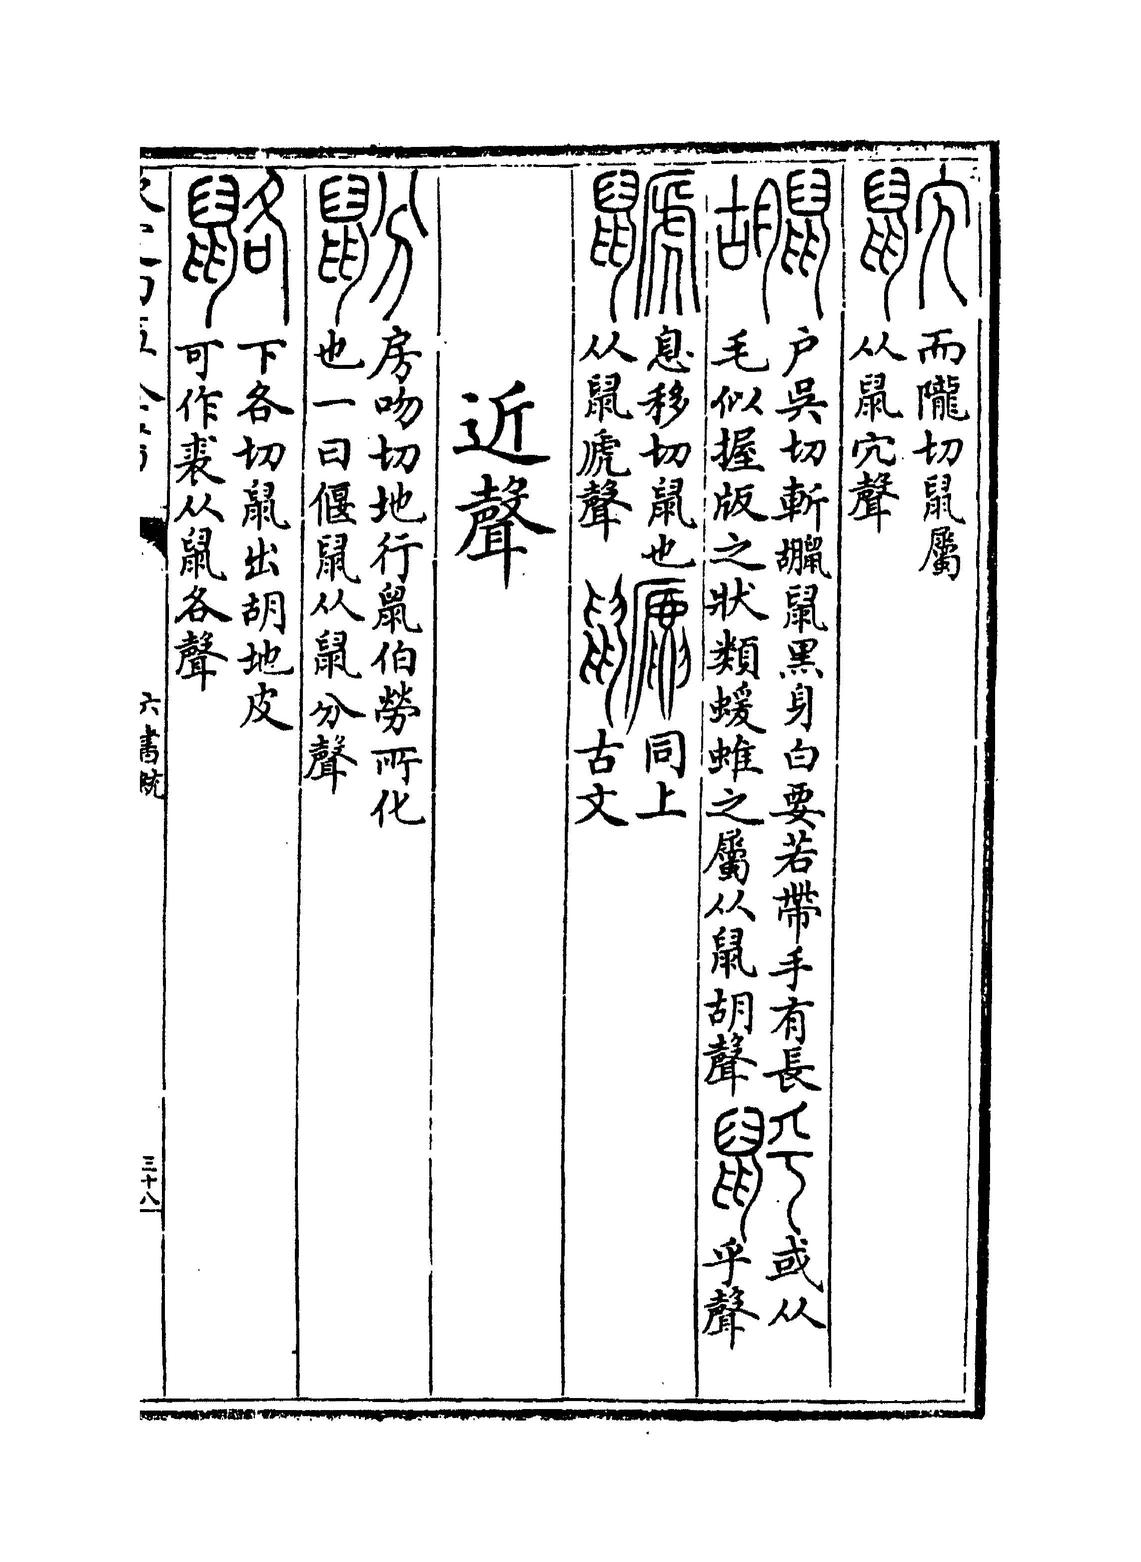 而隴切鼠屬
从鼠宂聲
䶎
户吳切斬䶎鼠黑身白要若帶手有長
毛似握版之狀類蝯蜼之屬从鼠胡聲
或从
乎聲
鼶
息移切鼠也
从鼠虒聲
同上
古文
近聲
鼢
房吻切地行鼠伯勞所化
也一曰偃鼠从鼠分聲
䶅
下各切鼠出胡地皮
可作裘从鼠各聲
六書統
三十八